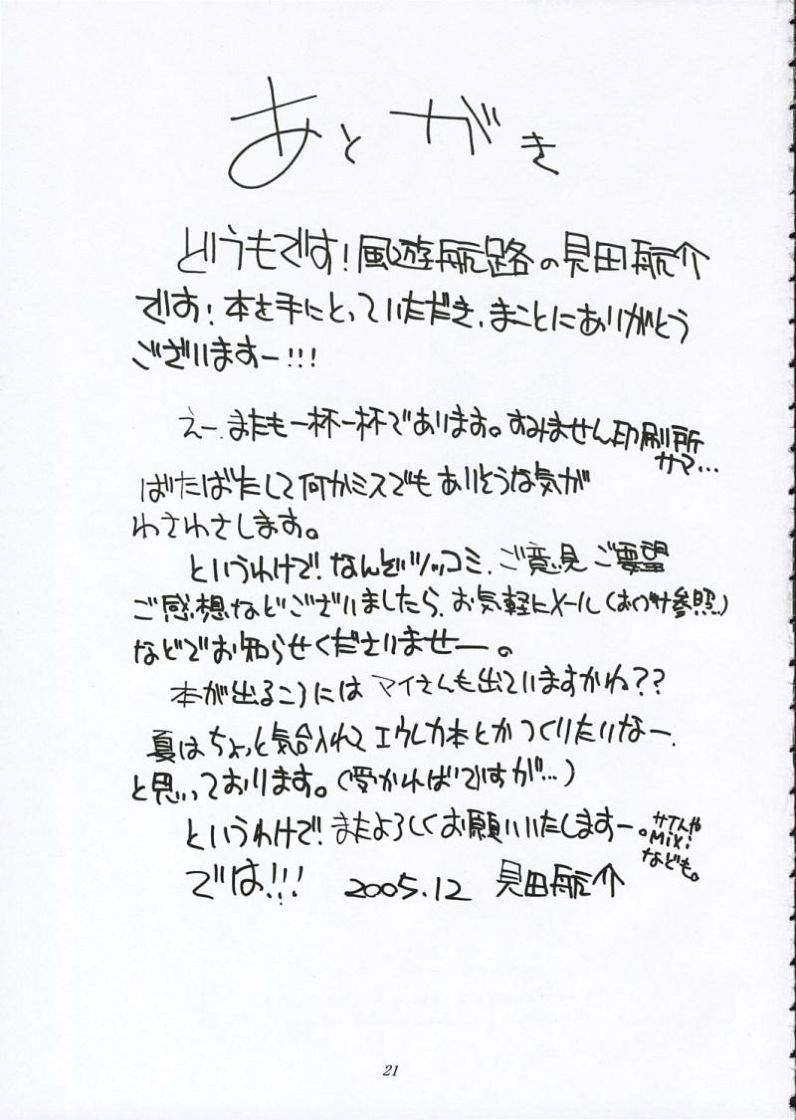 あとがき
どうもです！風遊航路の見田航介
です！本を手にとっていただき、まことにありがとう
ございますー!!!
えー、またも一杯一杯であります。すみません印刷所
サマ…
ばたばたして何かミスでもありそうな気が
わさわさします。
というわけで！なんぞツッコミ、ご意見ご要望
ご感想などございましたら、お気軽にメール(おくづけ参照)
などでお知らせくださいませー。
本が出るころにはマイさんも出ていますかね？？
夏はちょっと気合入れてエウレカ本とかつくりたいなー、
と思っております。(受かればですが…)
というわけで！またよろしくお願いいたしますー。
サイトや
Mixi
なども。
では!!!　2005.12　見田航介
21